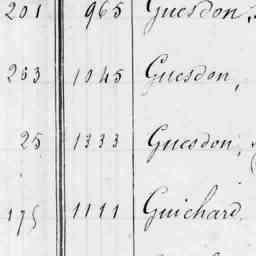 201 965 Guesdon,
263 1045 Guesdon,
25 1333 Guesdon,
175 1111 Guichard,